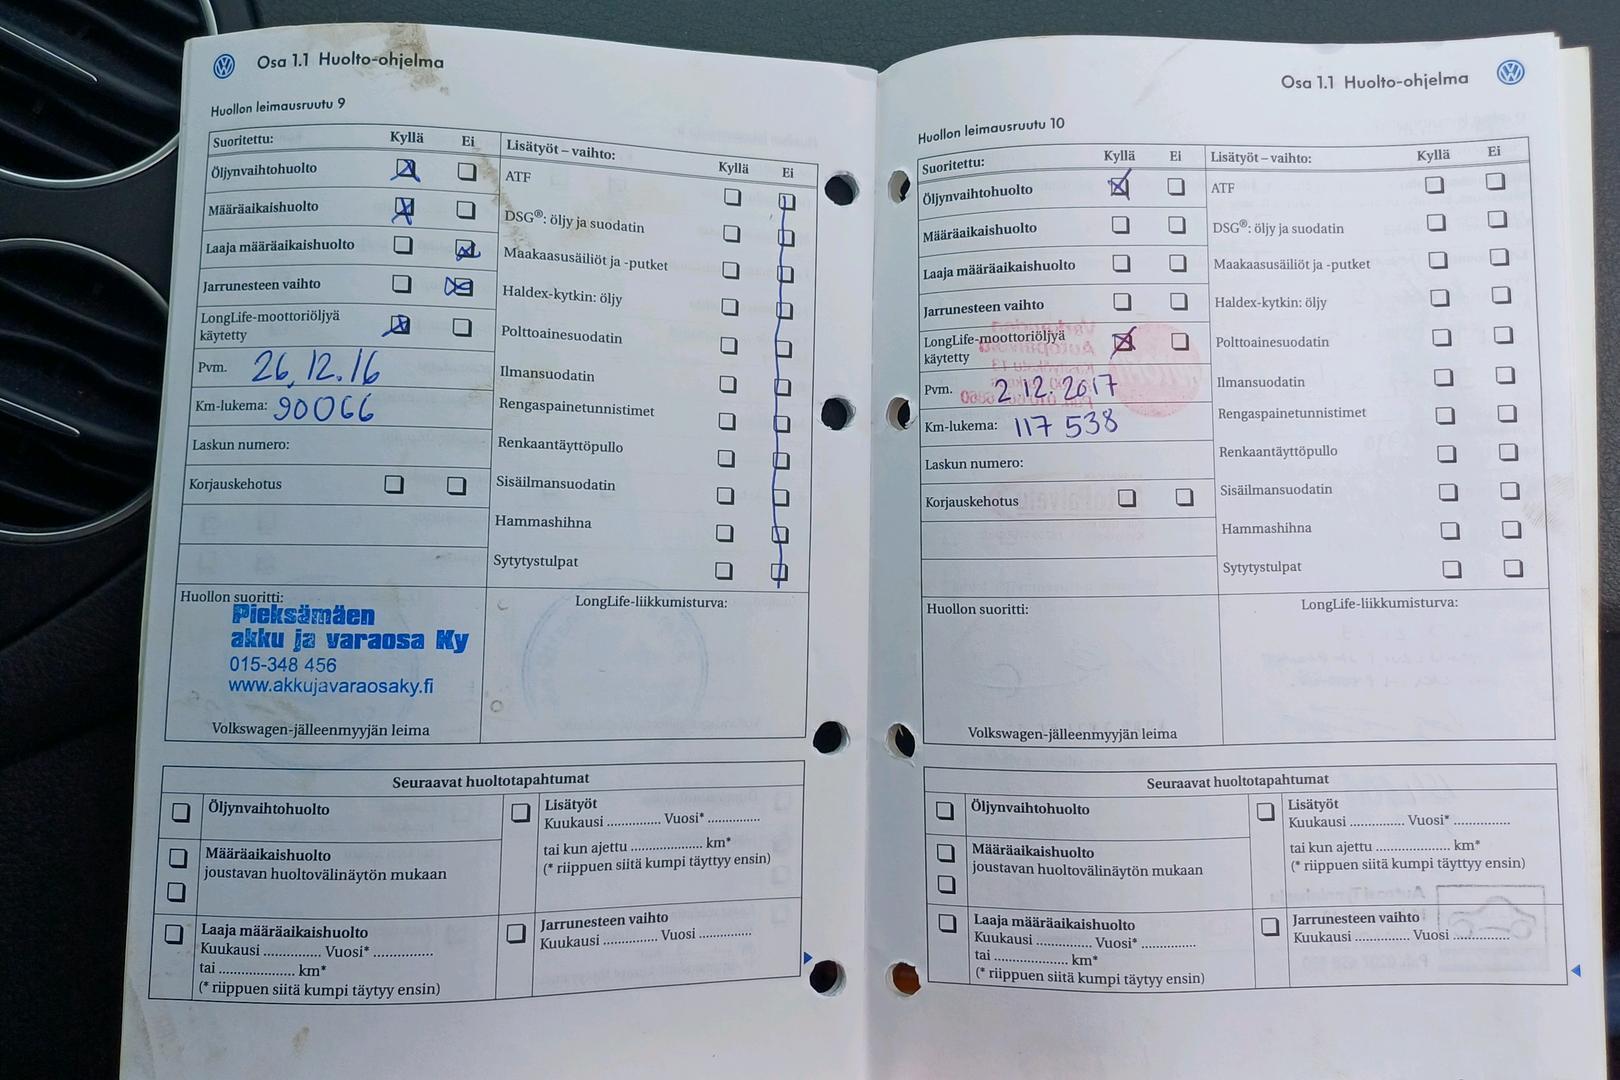 Osa 1.1 Huolto-ohjelma
Huollon leimausruutu 9
Suoritettu: Kyllä Ei
Öljynvaihtohuolto
Määräaikaishuolto
Laaja määräaikaishuolto
Jarrunesteen vaihto
LongLife-moottoriöljyä
käytetty
Pvm. 26.12.16
Km-lukema: 90066
Laskun numero:
Korjauskehotus
Lisätyöt – vaihto: Kyllä Ei
ATF
DSG®: öljy ja suodatin
Maakaasusäiliöt ja -putket
Haldex-kytkin: öljy
Polttoainesuodatin
Ilmansuodatin
Rengaspainetunnistimet
Renkaantäyttöpullo
Sisäilmansuodatin
Hammashihna
Sytytystulpat
Huollon suoritti:
Pieksämäen
akku ja varaosa Ky
015-348 456
www.akkujavaraosaky.fi
Volkswagen-jälleenmyyjän leima
LongLife-liikkumisturva:
Seuraavat huoltotapahtumat
Öljynvaihtohuolto
Määräaikaishuolto
joustavan huoltovälinäytön mukaan
Laaja määräaikaishuolto
Kuukausi .............. Vuosi* ..............
tai .................. km*
(* riippuen siitä kumpi täytyy ensin)
Lisätyöt
Kuukausi ............. Vuosi* .............
tai kun ajettu .................. km*
(* riippuen siitä kumpi täytyy ensin)
Jarrunesteen vaihto
Kuukausi ............. Vuosi .............
Osa 1.1 Huolto-ohjelma
Huollon leimausruutu 10
Suoritettu: Kyllä Ei
Öljynvaihtohuolto
Määräaikaishuolto
Laaja määräaikaishuolto
Jarrunesteen vaihto
LongLife-moottoriöljyä
käytetty
Pvm. 2.12.2017
Km-lukema: 117 538
Laskun numero:
Korjauskehotus
Lisätyöt – vaihto: Kyllä Ei
ATF
DSG®: öljy ja suodatin
Maakaasusäiliöt ja -putket
Haldex-kytkin: öljy
Polttoainesuodatin
Ilmansuodatin
Rengaspainetunnistimet
Renkaantäyttöpullo
Sisäilmansuodatin
Hammashihna
Sytytystulpat
Huollon suoritti:
Volkswagen-jälleenmyyjän leima
LongLife-liikkumisturva:
Seuraavat huoltotapahtumat
Öljynvaihtohuolto
Määräaikaishuolto
joustavan huoltovälinäytön mukaan
Laaja määräaikaishuolto
Kuukausi .............. Vuosi* .............
tai .................. km*
(* riippuen siitä kumpi täytyy ensin)
Lisätyöt
Kuukausi ............. Vuosi* .............
tai kun ajettu .................. km*
(* riippuen siitä kumpi täyttyy ensin)
Jarrunesteen vaihto
Kuukausi ............. Vuosi .............